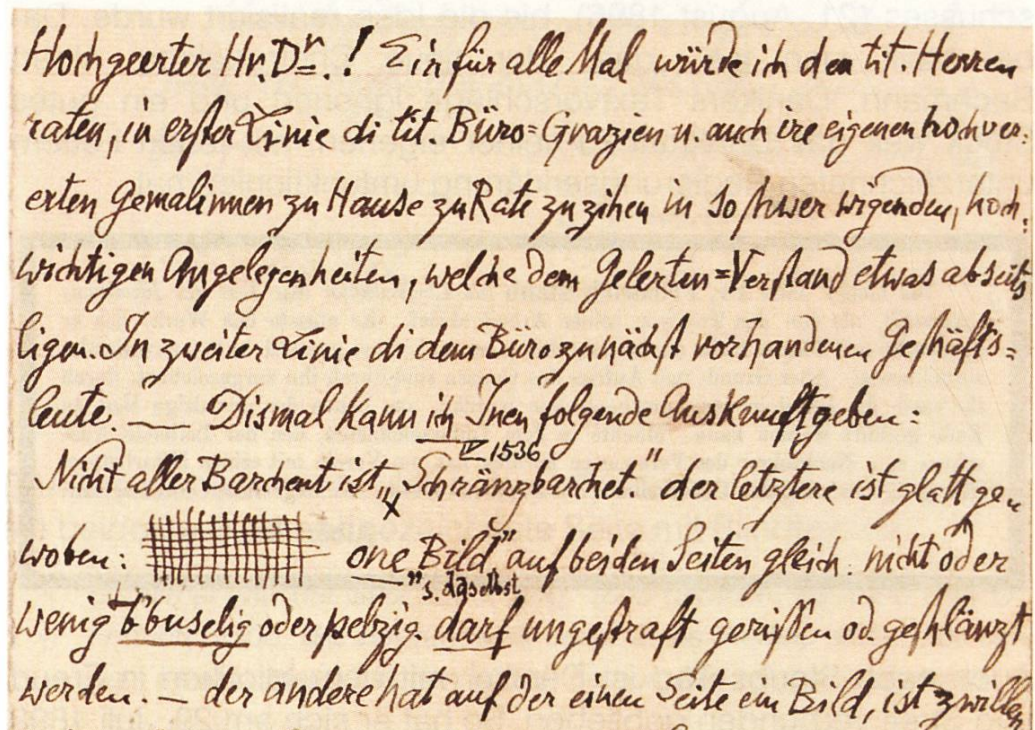 Hochgeerter Hr. Dr.! Ein für alle Mal würde ich den tit. Herren
raten, in erster Linie di tit. Büro=Grazien u. auch ire eigenen hochver-
erten Gemalinnen zu Hause zu Rate zu zihen in so schwer wigenden, hoch-
wichtigen Angelegenheiten, welche dem Gelerten=Verstand etwas abseits
ligen. In zweiter Linie di dem Büro zunächst vorhandenen Geschäfts=
leute. — Dismal kann ich Inen folgende Auskunft geben:
IV 1536
Nicht aller Barchent ist „Schränzbarchet." der letztere ist glatt ge-
woben: one „Bild," auf beiden Seiten gleich. nicht oder
s. daselbst
wenig b'buselig oder pelzig. darf ungestraft gerissen od. geschlänzt
werden. — der andere hat auf der einen Seite ein Bild, ist zwillen